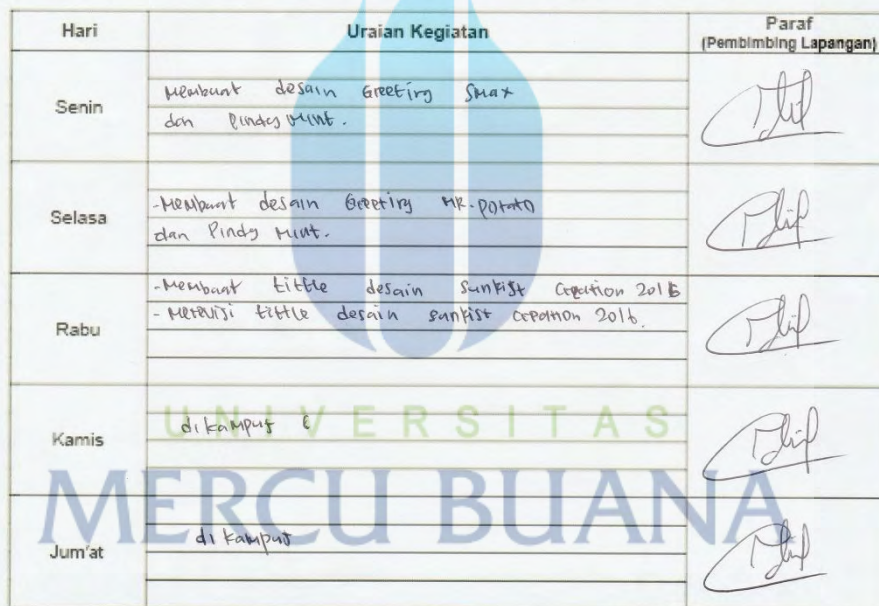 Hari Uraian Kegiatan Paraf
(Pembimbing Lapangan)
Senin
Membuat desain Greeting Smax
dan Pindy Mint.
Selasa
-Membuat desain Greeting MR.Potato
dan Pindy Mint.
Rabu
-Membuat tittle desain Sunkist 2016
- Merevisi tittle desain sunkist 2016.
Kamis
dikampus
UNIVERSITAS
MERCU BUANA
Jum'at
di kampus